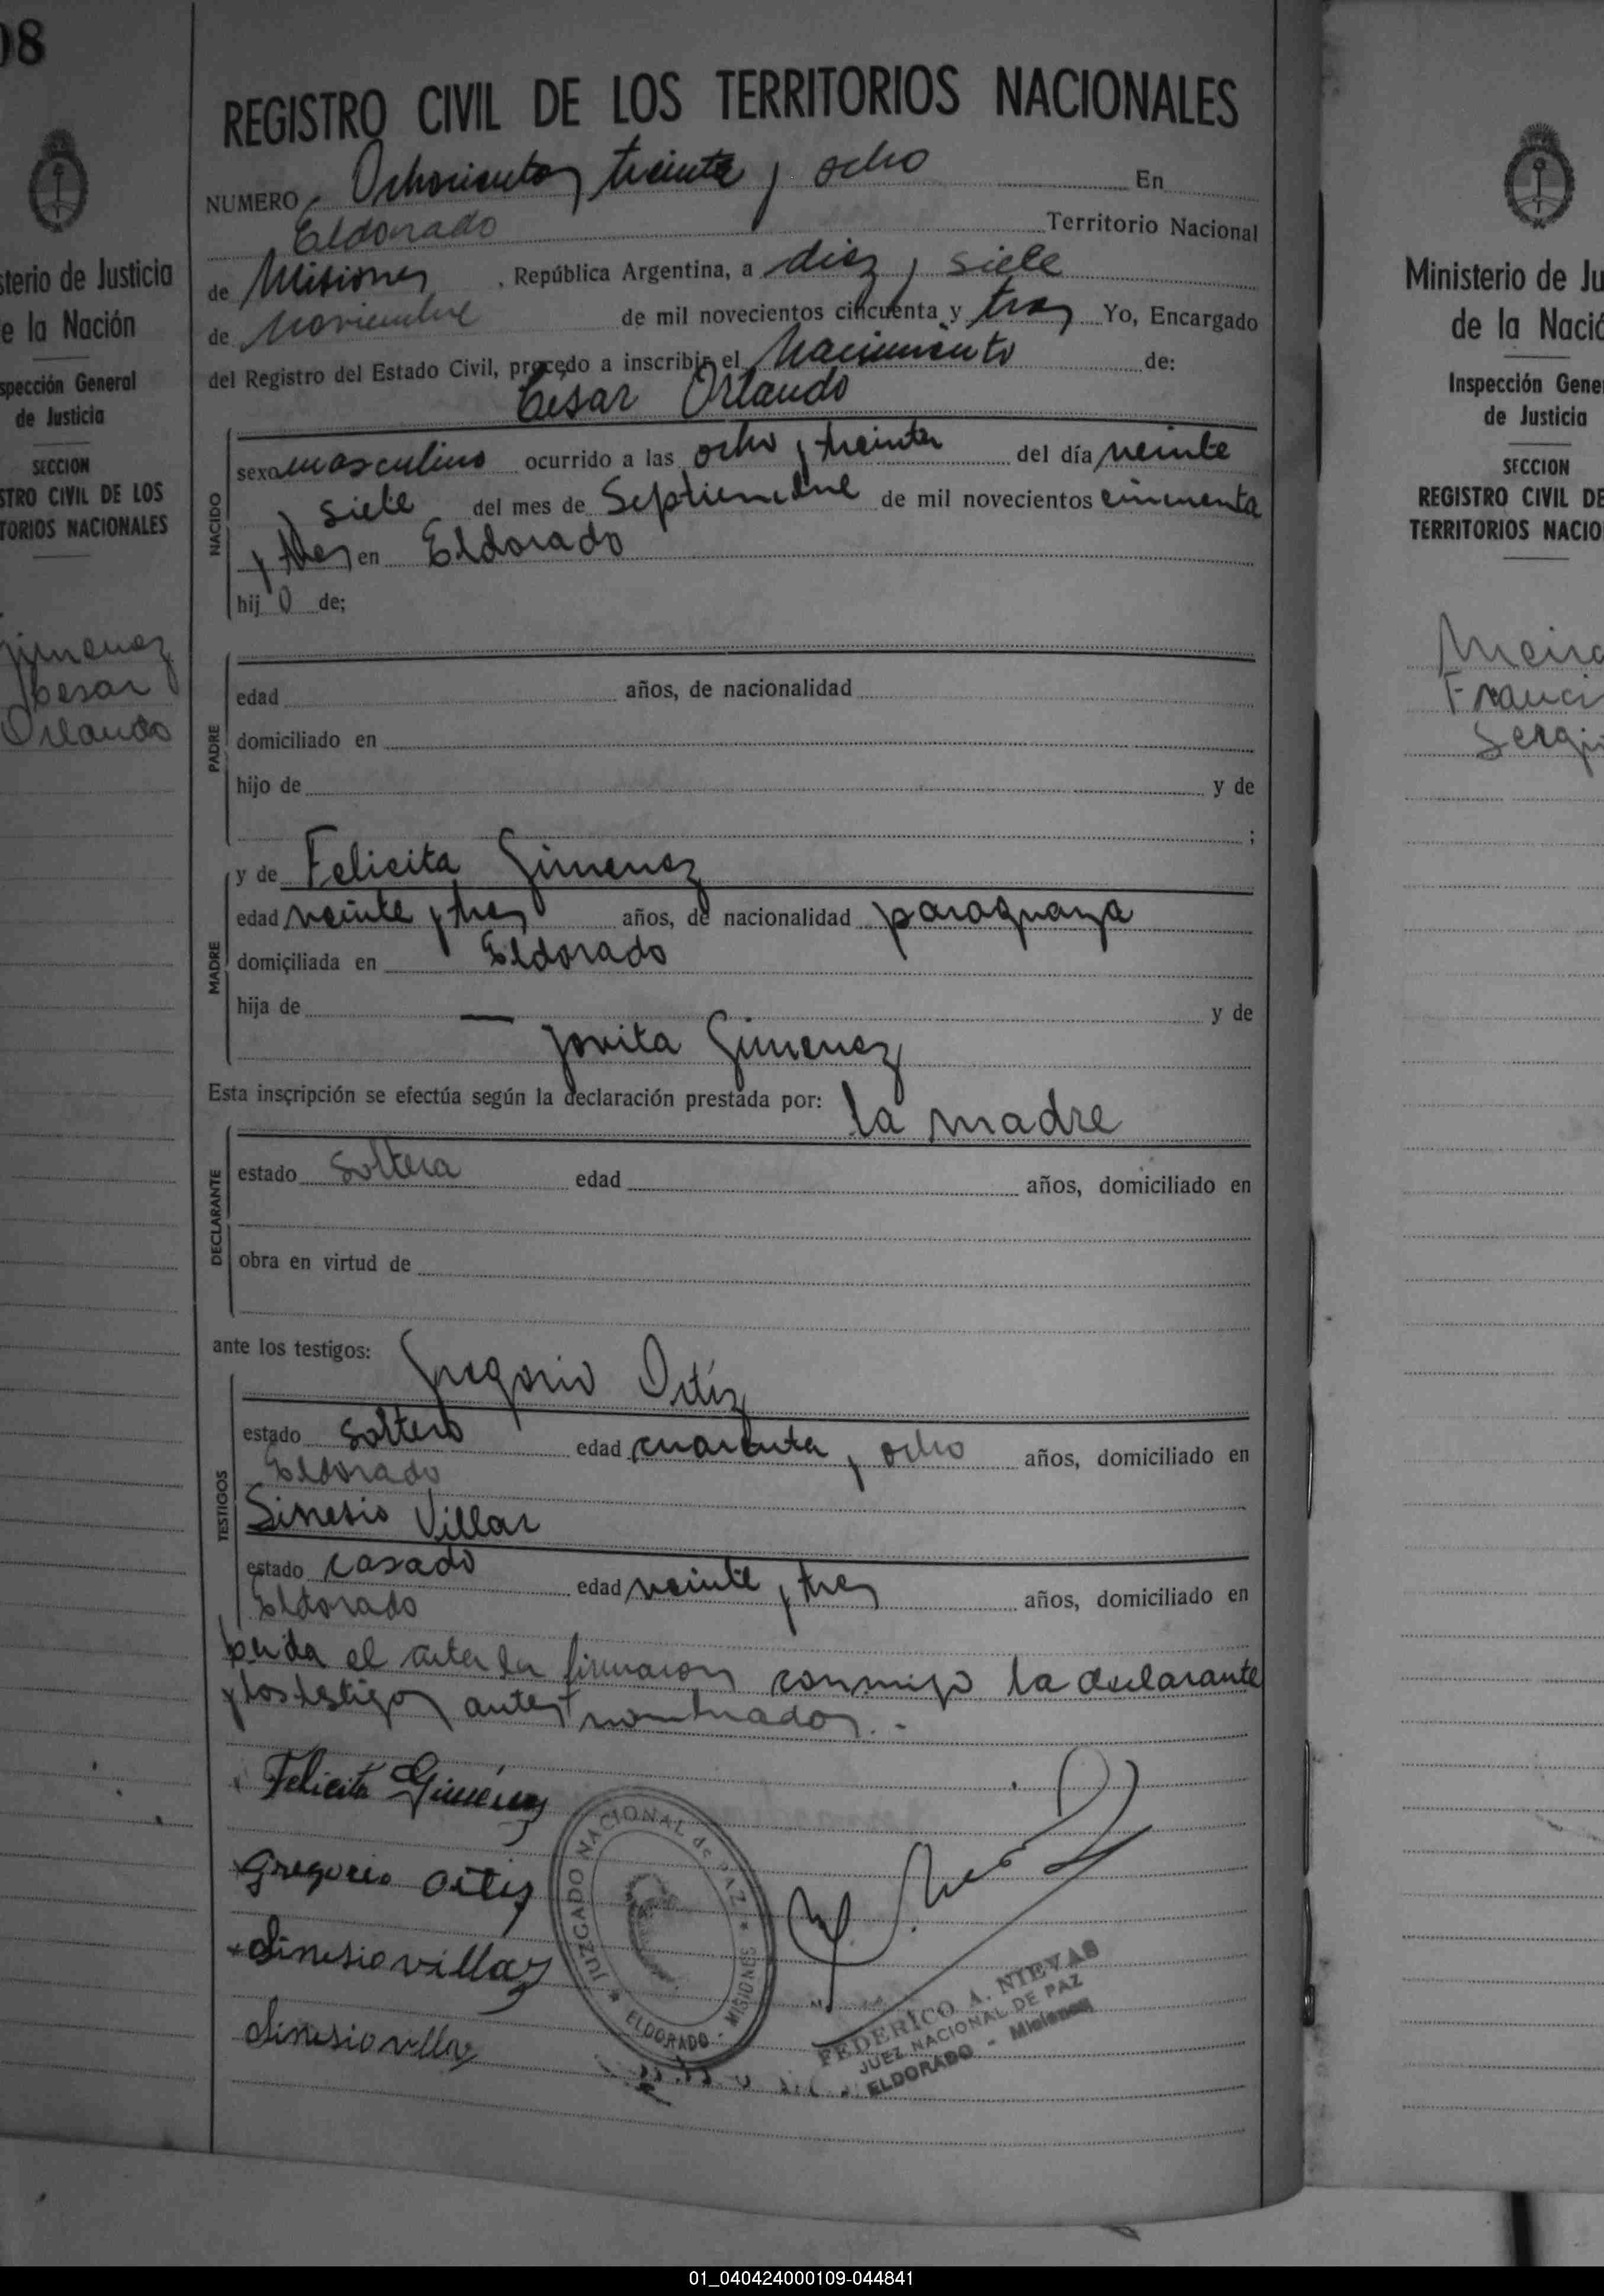 08
sterio de Justicia
e la Nación
spección General
de Justicia
SECCION
STRO CIVIL DE LOS
TORIOS NACIONALES
Jimenez
Cesar
Orlando
REGISTRO CIVIL DE LOS TERRITORIOS NACIONALES
NUMERO Ochocientos treinta y ocho En
Eldorado Territorio Nacional
de Misiones, República Argentina, a diez y siete
de Noviembre de mil novecientos cincuenta y tres Yo, Encargado
del Registro del Estado Civil, procedo a inscribir el Nacimiento de:
César Orlando
NACIDO
sexo masculino ocurrido a las ocho y treinta del día veinte
y siete del mes de Septiembre de mil novecientos cincuenta
y tres en Eldorado
hijo de;
PADRE
edad años, de nacionalidad
domiciliado en
hijo de y de
;
MADRE
y de Felicita Gimenez
edad veinte y tres años, de nacionalidad paraguaya
domiciliada en Eldorado
hija de — y de
Jovita Gimenez
Esta inscripción se efectúa según la declaración prestada por:
la madre
DECLARANTE
estado soltera edad años, domiciliado en
obra en virtud de
ante los testigos:
Gregorio Ortíz
TESTIGOS
estado soltero edad cuarenta y ocho años, domiciliado en
Eldorado
Sinesio Villar
estado casado edad veinte y tres años, domiciliado en
Eldorado
el acta la firmaron conmigo la declarante
y los testigos antes nombrados.-
Felicita Giménez
Gregorio Ortiz
Sinesio villar
Sinesio villar
JUZGADO NACIONAL de PAZ
ELDORADO - MISIONES
FEDERICO A. NIEVAS
JUEZ NACIONAL DE PAZ
ELDORADO - Misiones
Ministerio de Ju
de la Nació
Inspección Gene
de Justicia
SECCION
REGISTRO CIVIL DE
TERRITORIOS NACIO
Franci
Sergi
01_040424000109-044841